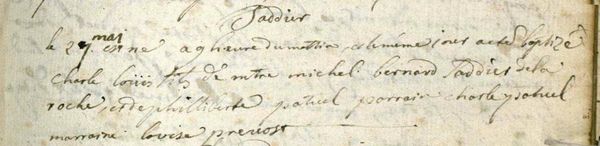 Taddier
le 27 mai est né a 9 heure du mattin et le même jour a eté baptizé
Charle Loüis fils de mtre michel bernard Taddier de la
roche, et de philliberte patuel parrain charle patuel
marraine lovise prevost